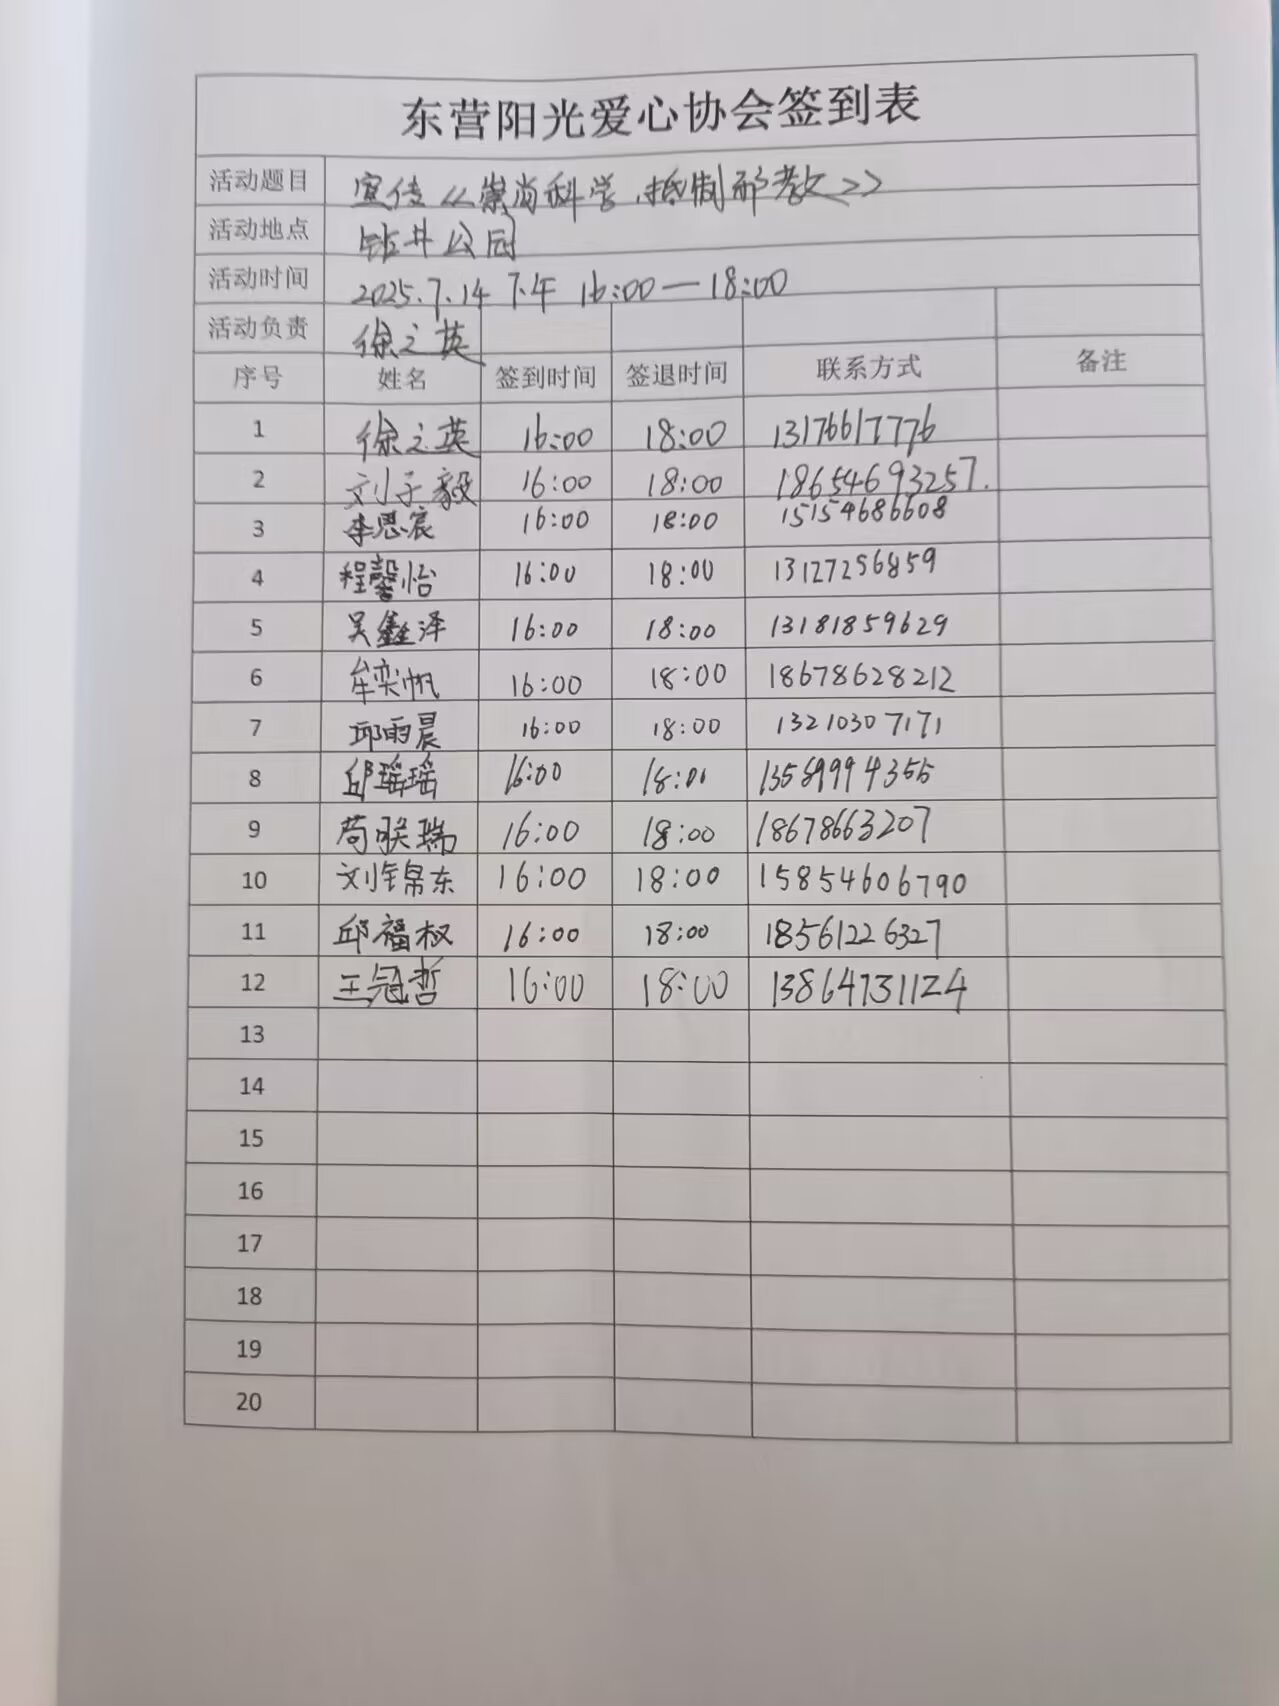 东营阳光爱心协会签到表
活动题目 宣传《崇尚科学,抵制邪教》
活动地点 钻井公园
活动时间 2025.7.14 下午 16:00—18:00
活动负责 徐之英
序号 姓名 签到时间 签退时间 联系方式 备注
1 徐之英 16:00 18:00 13176617776
2 刘子毅 16:00 18:00 18654693257.
3 李思宸 16:00 18:00 15154686608
4 程馨怡 16:00 18:00 13127256859
5 吴鑫泽 16:00 18:00 13181859629
6 牟奕帆 16:00 18:00 18678628212
7 邱雨晨 16:00 18:00 13210307171
8 邱瑶瑶 16:00 18:00 13589994355
9 苟联瑞 16:00 18:00 18678663207
10 刘锦东 16:00 18:00 15854606790
11 邱福权 16:00 18:00 18561226327
12 王冠哲 16:00 18:00 13864731124
13
14
15
16
17
18
19
20